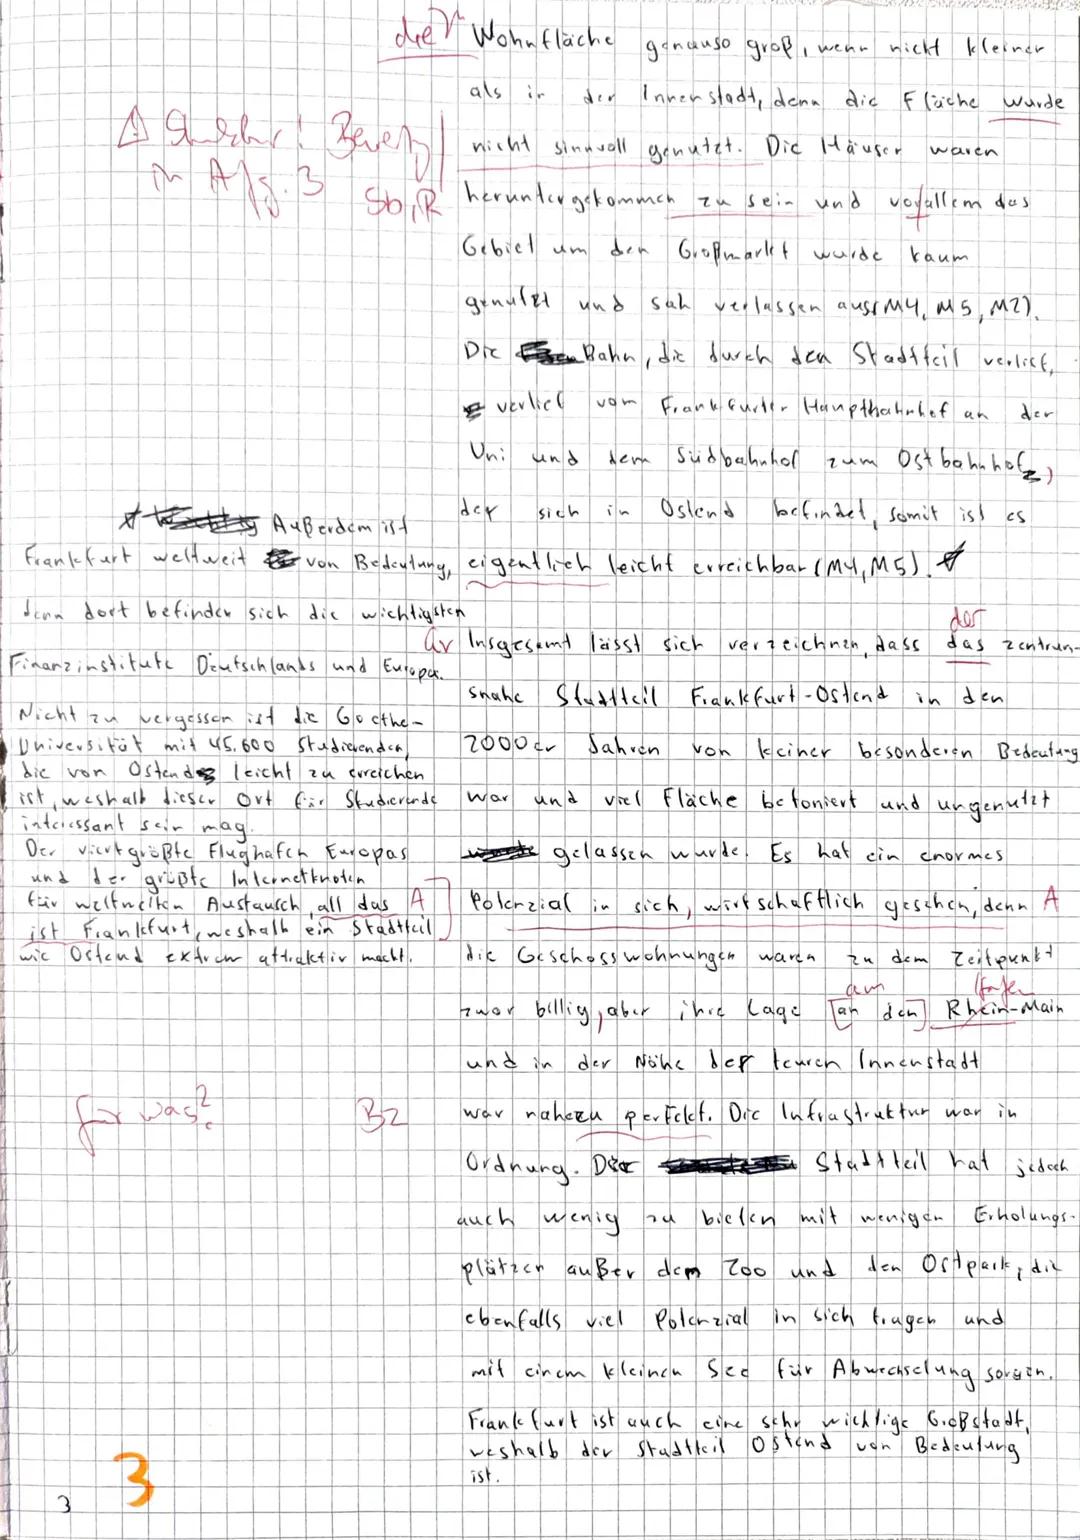 die Wohnfläche genauso groß, wenn nicht kleiner
als in der Innenstadt, denn die Fläche wurde
nicht sinnvoll genutzt. Die Häuser waren
in Afg. 3 Sb, R
heruntergekommen zu sein und vorallem das
Gebiet um den Großmarkt wurde kaum
genutzt und sah verlassen aus (M4, M5, M2).
Die Bahn, die durch den Stadtteil verlief,
verlief vom Frankfurter Haupthahnhof an der
Uni und dem Südbahnhof zum Ostbahnhof,
der sich in Ostend befindet, somit ist es
eigentlich leicht erreichbar (M4, M5).
Außerdem ist
Frankfurt weltweit von Bedeutung,
denn dort befinden sich die wichtigsten
Finanzinstitute Deutschlands und Europa.
Nicht zu vergessen ist die Goethe-
Universität mit 45.600 Studierenden,
die von Ostend leicht zu erreichen
ist, weshalb dieser Ort für Studierende
interessant sein mag.
Der viertgrößte Flughafen Europas
und der größte Internetknoten
für weltweiten Austausch, all das A
ist Frankfurt, weshalb ein Stadtteil
wie Ostend extrem attraktiv macht.
der
Gr Insgesamt lässt sich verzeichnen, dass das zentrun-
snahe Stadtteil Frankfurt-Ostend in den
2000er Jahren von keiner besonderen Bedeutung
war und viel Fläche betoniert und ungenutzt
gelassen wurde. Es hat ein enormes
Potenzial in sich, wirtschaftlich gesehen, denn A
die Geschosswohnungen waren zu dem Zeitpunkt
am Hafen
zwar billig, aber ihre Lage an den Rhein-Main
und in der Nähe der teuren Innenstadt
für was? Bz
war nahezu perfekt. Die Infrastruktur war in
Ordnung. Der Stadtteil hat jedoch
auch wenig zu bieten mit wenigen Erholungs-
plätzen außer dem Zoo und den Ostpark, die
ebenfalls viel Potenzial in sich tragen und
mit einem kleinen See für Abwechselung sorgen.
Frankfurt ist auch eine sehr wichtige Großstadt,
weshalb der Stadtteil Ostend von Bedeutung
ist.
3
3